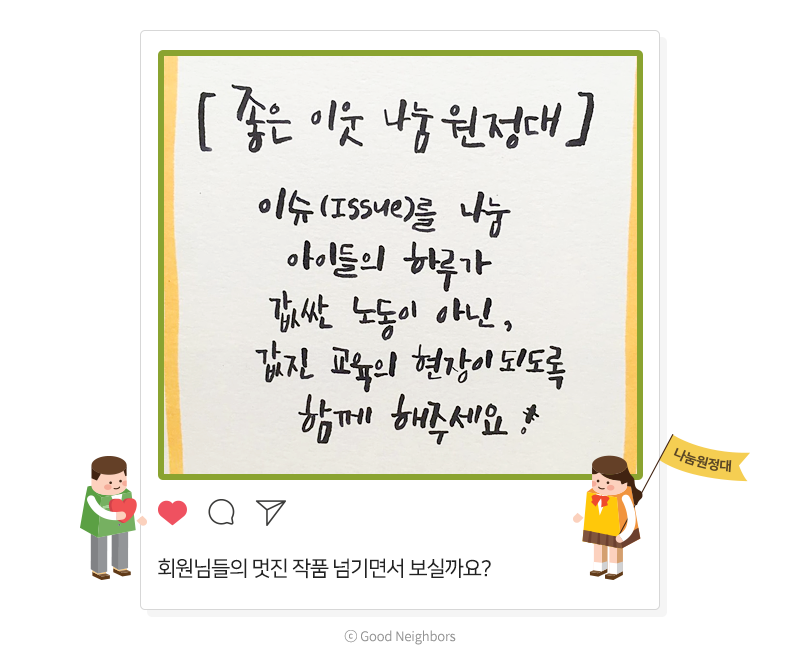 [좋은 이웃 나눔 원정대]
이슈(Issue)를 나눔
아이들의 하루가
값싼 노동이 아닌,
값진 교육의 현장이 되도록
함께 해주세요!
나눔원정대
회원님들의 멋진 작품 넘기면서 보실까요?
ⓒ Good Neighbors